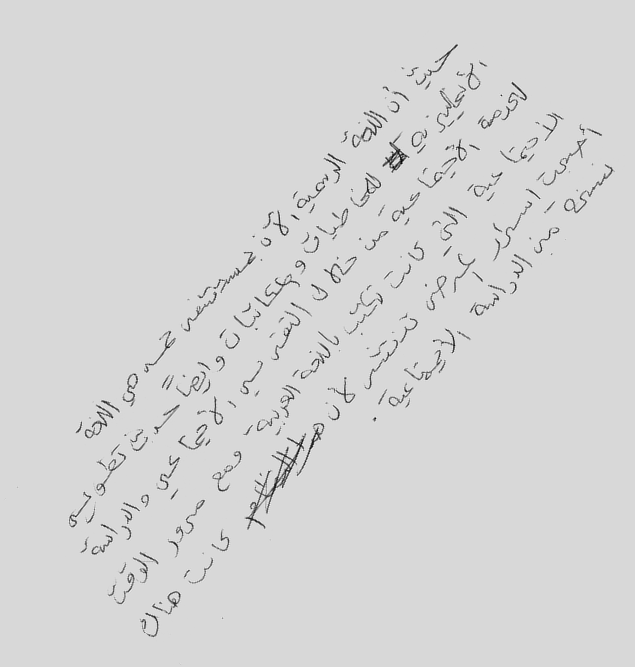 حيث أن اللغة الرسمية الآن في مستشفى هي اللغة
الأنجليزيه للمخاطبات ومكاتبات وايضاً حدث تطوير
لخدمة الاجتماعية من خلال التقيسم الاجتماعي والدراسة
الأجتماعية التي كانت تكتب باللغة العربية ومع مرور الوقت
أصبحت اسرار المرض تنتشر لأن كانت هناك
نسخة من الدراسة الأجتماعية .